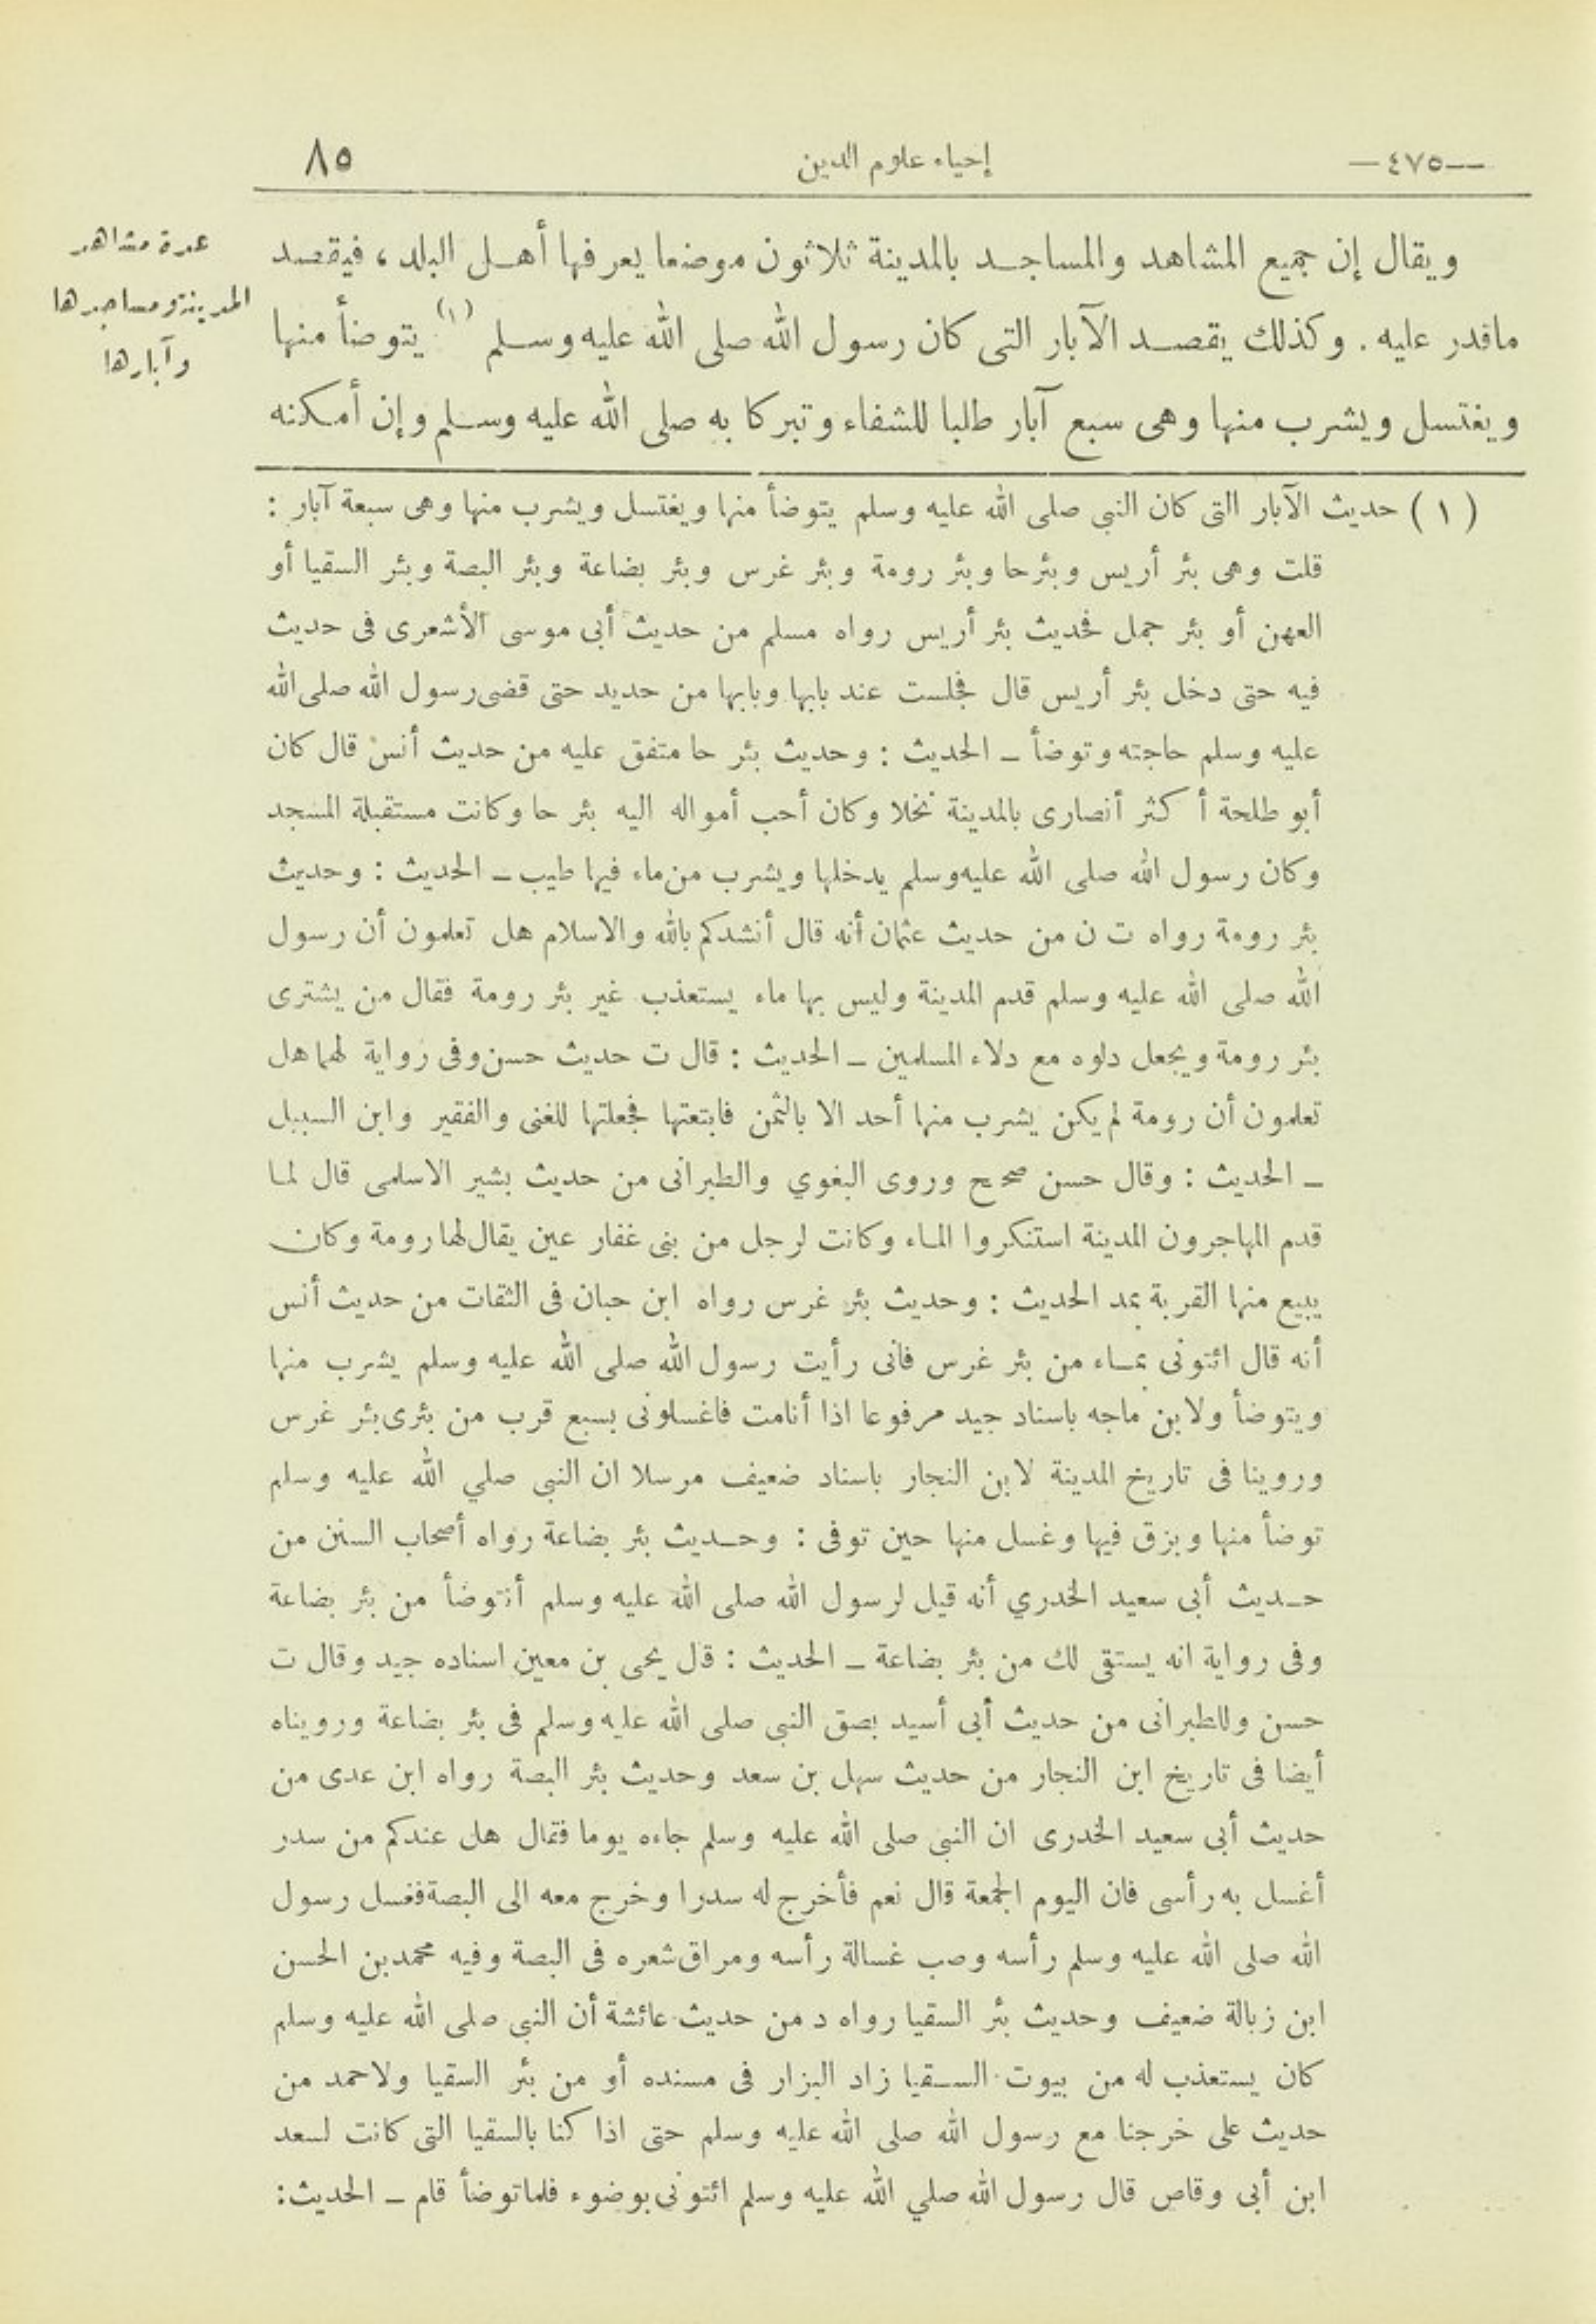 —٤٧٥—
إحياء علوم الدين
٨٥
ويقال إن جميع المشاهد والمساجد بالمدينة ثلاثون موضعا يعرفها أهل البلد ، فيقصد
ماقدر عليه . وكذلك يقصد الآبار التى كان رسول الله صلى الله عليه وسلم (١) يتوضأ منها
ويغتسل ويشرب منها وهى سبع آبار طلبا للشفاء وتبركا به صلى الله عليه وسلم وإن أمكنه
عدة مشاهد
المدينة ومساجدها
وآبارها
(١) حديث الآبار التى كان النبى صلى الله عليه وسلم يتوضأ منها ويغتسل ويشرب منها وهى سبعة آبار :
قلت وهى بئر أريس وبئرحا وبئر رومة وبئر غرس وبئر بضاعة وبئر البصة وبئر السقيا أو
العهن أو بئر جمل فحديث بئر أريس رواه مسلم من حديث أبى موسى الأشعرى فى حديث
فيه حتى دخل بئر أريس قال فجلست عند بابها وبابها من حديد حتى قضى رسول الله صلى الله
عليه وسلم حاجته وتوضأ ـ الحديث : وحديث بئر حا متفق عليه من حديث أنس قال كان
أبو طلحة أكثر أنصارى بالمدينة نخلا وكان أحب أمواله اليه بئر حا وكانت مستقبلة المسجد
وكان رسول الله صلى الله عليه وسلم يدخلها ويشرب من ماء فيها طيب ـ الحديث : وحديث
بئر رومة رواه ت ن من حديث عثمان أنه قال أنشدكم بالله والاسلام هل تعلمون أن رسول
الله صلى الله عليه وسلم قدم المدينة وليس بها ماء يستعذب غير بئر رومة فقال من يشترى
بئر رومة ويجعل دلوه مع دلاء المسلمين ـ الحديث : قال ت حديث حسن وفى رواية لهما هل
تعلمون أن رومة لم يكن يشرب منها أحد الا بالثمن فابتعتها فجعلتها للغنى والفقير وابن السبيل
ـ الحديث : وقال حسن صحيح وروى البغوي والطبرانى من حديث بشير الاسلمى قال لما
قدم المهاجرون المدينة استنكروا الماء وكانت لرجل من بنى غفار عين يقال لها رومة وكان
يبيع منها القربة بمد الحديث : وحديث بئر غرس رواه ابن حبان فى الثقات من حديث أنس
أنه قال ائتونى بماء من بئر غرس فانى رأيت رسول الله صلى الله عليه وسلم يشرب منها
ويتوضأ ولابن ماجه باسناد جيد مرفوعا اذا أنامت فاغسلونى بسبع قرب من بئرى بئر غرس
وروينا فى تاريخ المدينة لابن النجار باسناد ضعيف مرسلا ان النبى صلي الله عليه وسلم
توضأ منها وبزق فيها وغسل منها حين توفى : وحديث بئر بضاعة رواه أصحاب السنن من
حديث أبى سعيد الخدري أنه قيل لرسول الله صلى الله عليه وسلم أنتوضأ من بئر بضاعة
وفى رواية انه يستقى لك من بئر بضاعة ـ الحديث : قال يحى بن معين اسناده جيد وقال ت
حسن وللطبرانى من حديث أبى أسيد بصق النبى صلى الله عليه وسلم فى بئر بضاعة ورويناه
أيضا فى تاريخ ابن النجار من حديث سهل بن سعد وحديث بئر البصة رواه ابن عدى من
حديث أبى سعيد الخدرى ان النبى صلى الله عليه وسلم جاءه يوما فقال هل عندكم من سدر
أغسل به رأسى فان اليوم الجمعة قال نعم فأخرج له سدرا وخرج معه الى البصة فغسل رسول
الله صلى الله عليه وسلم رأسه وصب غسالة رأسه ومراق شعره فى البصة وفيه محمد بن الحسن
ابن زبالة ضعيف وحديث بئر السقيا رواه د من حديث عائشة أن النبى صلى الله عليه وسلم
كان يستعذب له من بيوت السقيا زاد البزار فى مسنده أو من بئر السقيا ولاحمد من
حديث على خرجنا مع رسول الله صلى الله عليه وسلم حتى اذا كنا بالسقيا التى كانت لسعد
ابن أبى وقاص قال رسول الله صلي الله عليه وسلم ائتونى بوضوء فلما توضأ قام ـ الحديث :